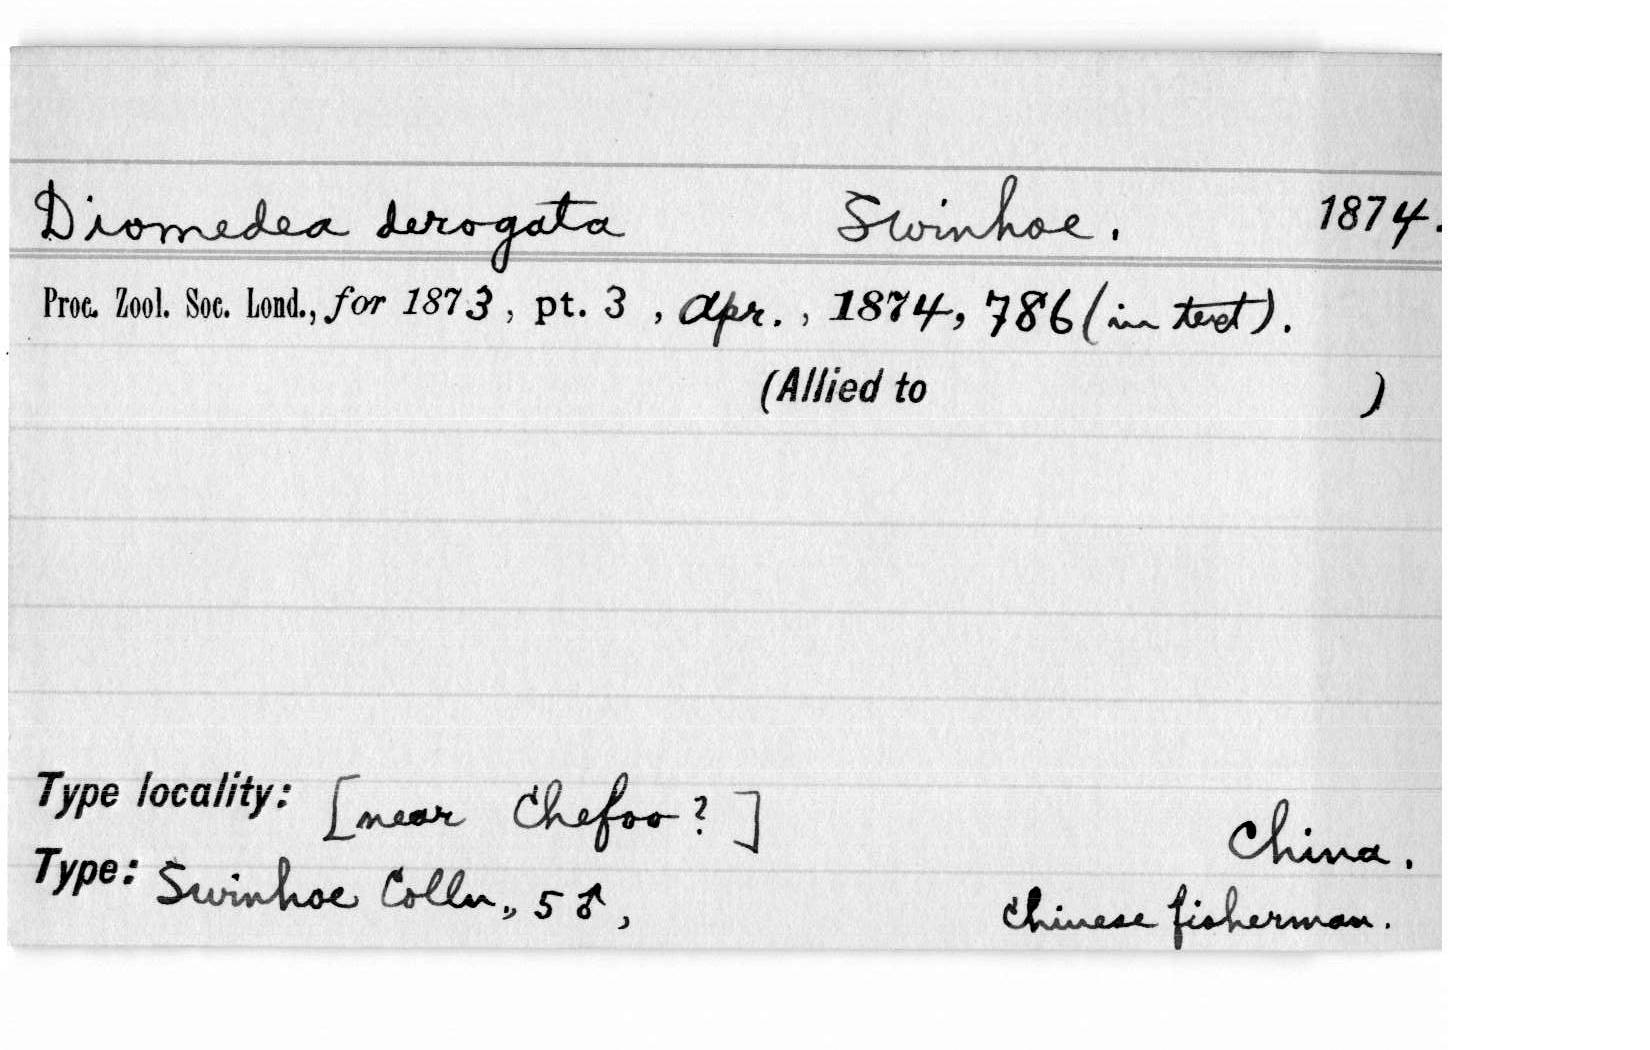 Diomedea derogata Swinhoe. 1874.
Proc. Zool. Soc. Lond., for 1873, pt. 3, Apr., 1874, 786 (in text).
(Allied to )
Type locality: [near Chefoo?] China.
Type: Swinhoe Colln., 5 ♂, Chinese fisherman.